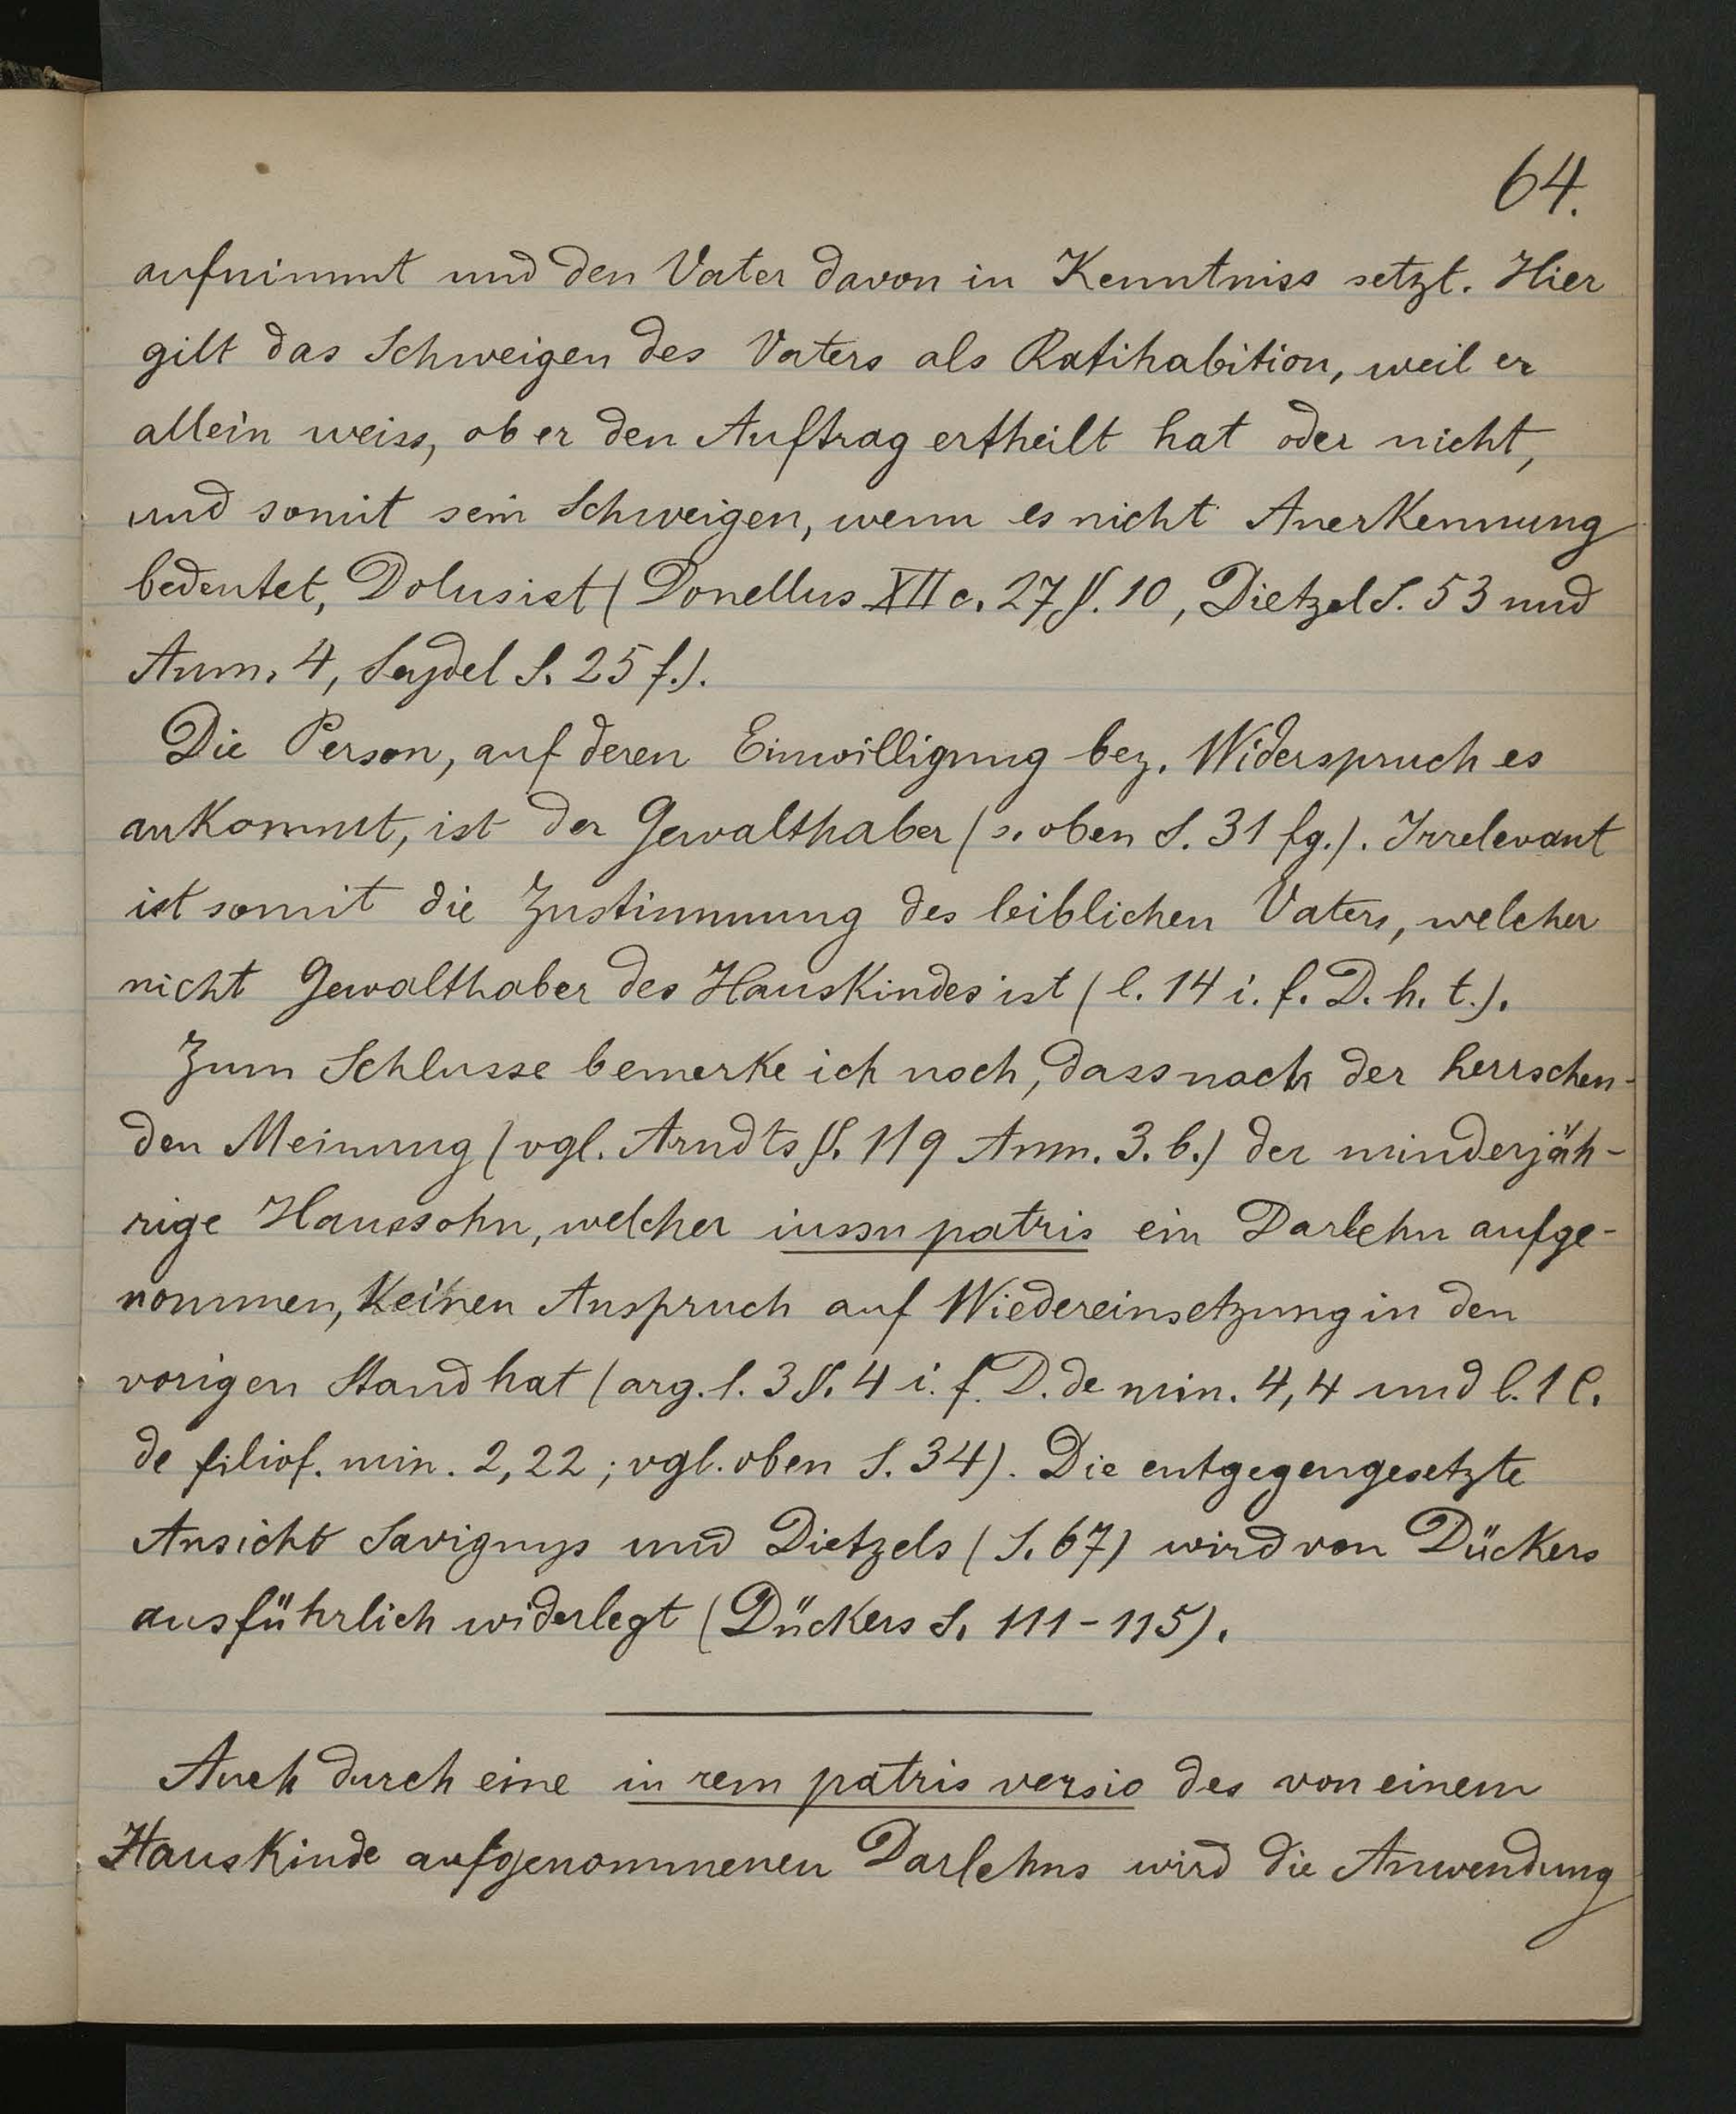 64.
aufnimmt und den Vater davon in Kenntniss setzt. Hier
gilt das Schweigen des Vaters als Ratihabition, weil er
allein weiss, ob er den Auftrag ertheilt hat oder nicht,
und somit sein Schweigen, wenn es nicht Anerkennung
bedeutet, Dolus ist (Donellus XII c. 27 §. 10, Dietzel S. 53 und
Anm. 4, Seydel S. 25 f.).
Die Person, auf deren Einwilligung bez. Widerspruch es
ankommt, ist der Gewalthaber (s. oben S. 31 fg.). Irrelevant
ist somit die Zustimmung des leiblichen Vaters, welcher
nicht Gewalthaber des Hauskindes ist (l. 14 i. f. D. h. t.).
Zum Schlusse bemerke ich noch, dass nach der herrschen-
den Meinung (vgl. Arndts §. 119 Anm. 3. b.) der minderjäh-
rige Haussohn, welcher iussu patris ein Darlehn aufge-
nommen, keinen Anspruch auf Wiedereinsetzung in den
vorigen Stand hat (arg. l. 3 §. 4 i. f. D. de min. 4,4 und l. 1 C.
de filiof. min. 2,22; vgl. oben S. 34). Die entgegengesetzte
Ansicht Savignys und Dietzels (S. 67) wird von Dückers
ausführlich widerlegt (Dückers S. 111-115).
Auch durch eine in rem patris versio des von einem
Hauskinde aufgenommenen Darlehns wird die Anwendung